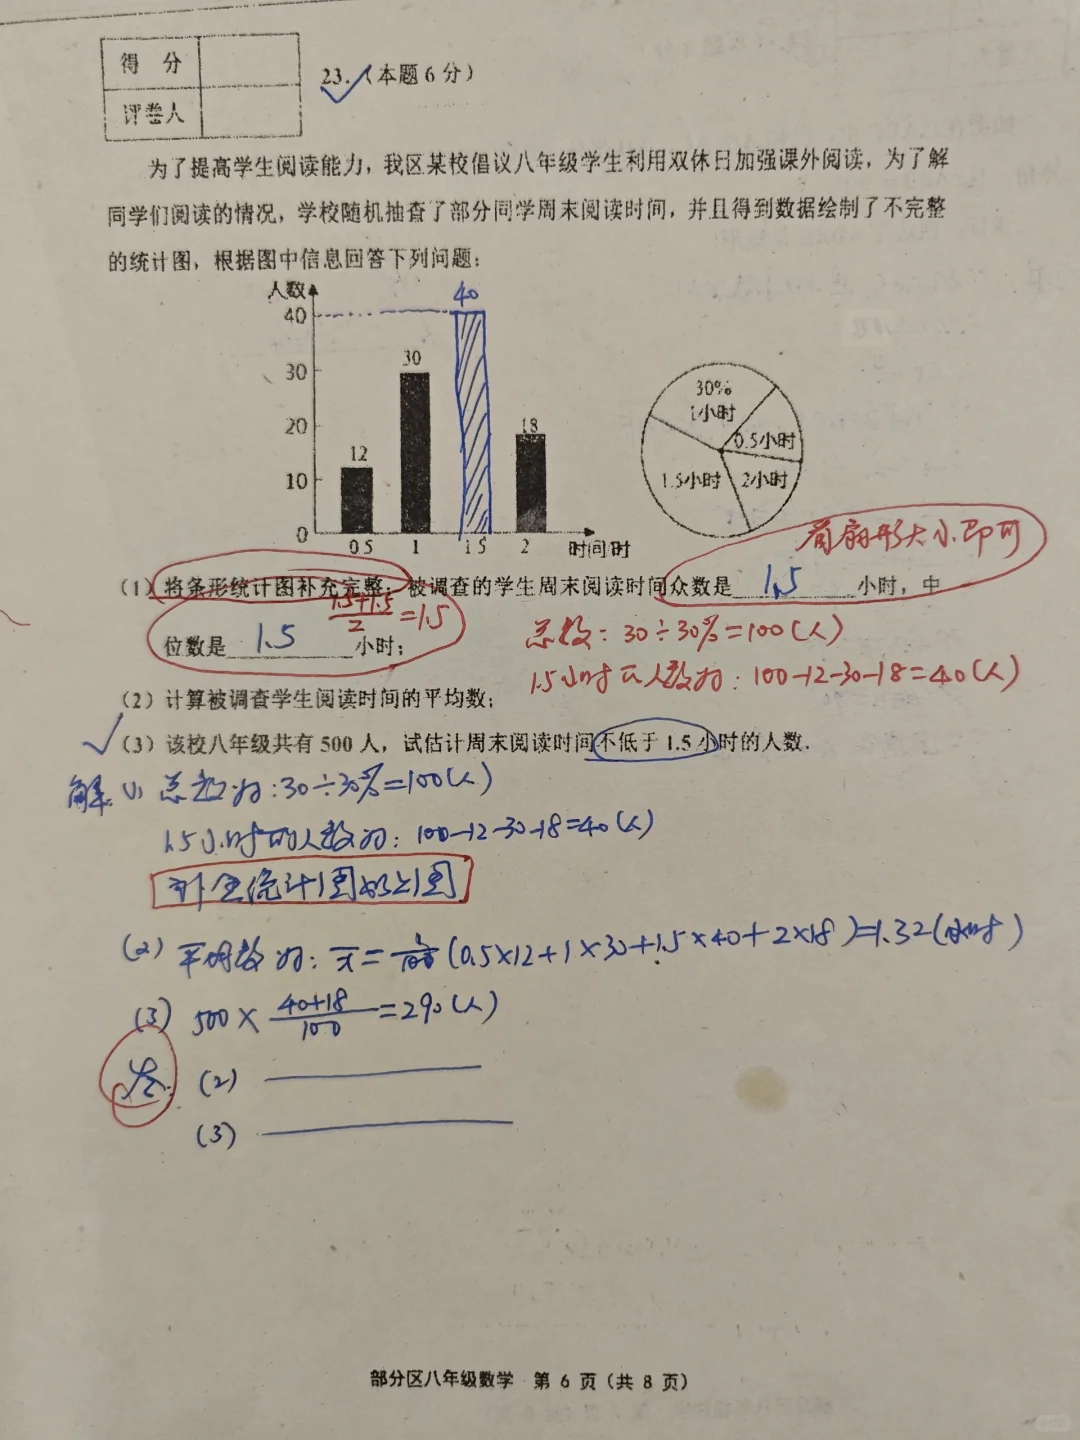 得 分
评卷人
23.（本题6分）
为了提高学生阅读能力，我区某校倡议八年级学生利用双休日加强课外阅读，为了解
同学们阅读的情况，学校随机抽查了部分同学周末阅读时间，并且得到数据绘制了不完整
的统计图，根据图中信息回答下列问题：
人数
40
40
30
20
10
0
12
30
18
0.5 1 1.5 2 时间/时
30%
1小时
0.5小时
1.5小时
2小时
看扇形大小即可
（1）将条形统计图补充完整；被调查的学生周末阅读时间众数是 1.5 小时，中
位数是 1.5 小时；
(1.5+1.5)/2=1.5
总数：30÷30%=100(人)
1.5小时的人数为：100-12-30-18=40(人)
（2）计算被调查学生阅读时间的平均数；
（3）该校八年级共有 500 人，试估计周末阅读时间不低于 1.5 小时的人数.
解 (1) 总数为：30÷30%=100(人)
1.5小时的人数为：100-12-30-18=40(人)
补全统计图如上图
(2) 平均数为：x̄=1/100(0.5×12+1×30+1.5×40+2×18)=1.32(小时)
(3) 500×(40+18)/100=290(人)
答：(2)
(3)
部分区八年级数学 第 6 页（共 8 页）